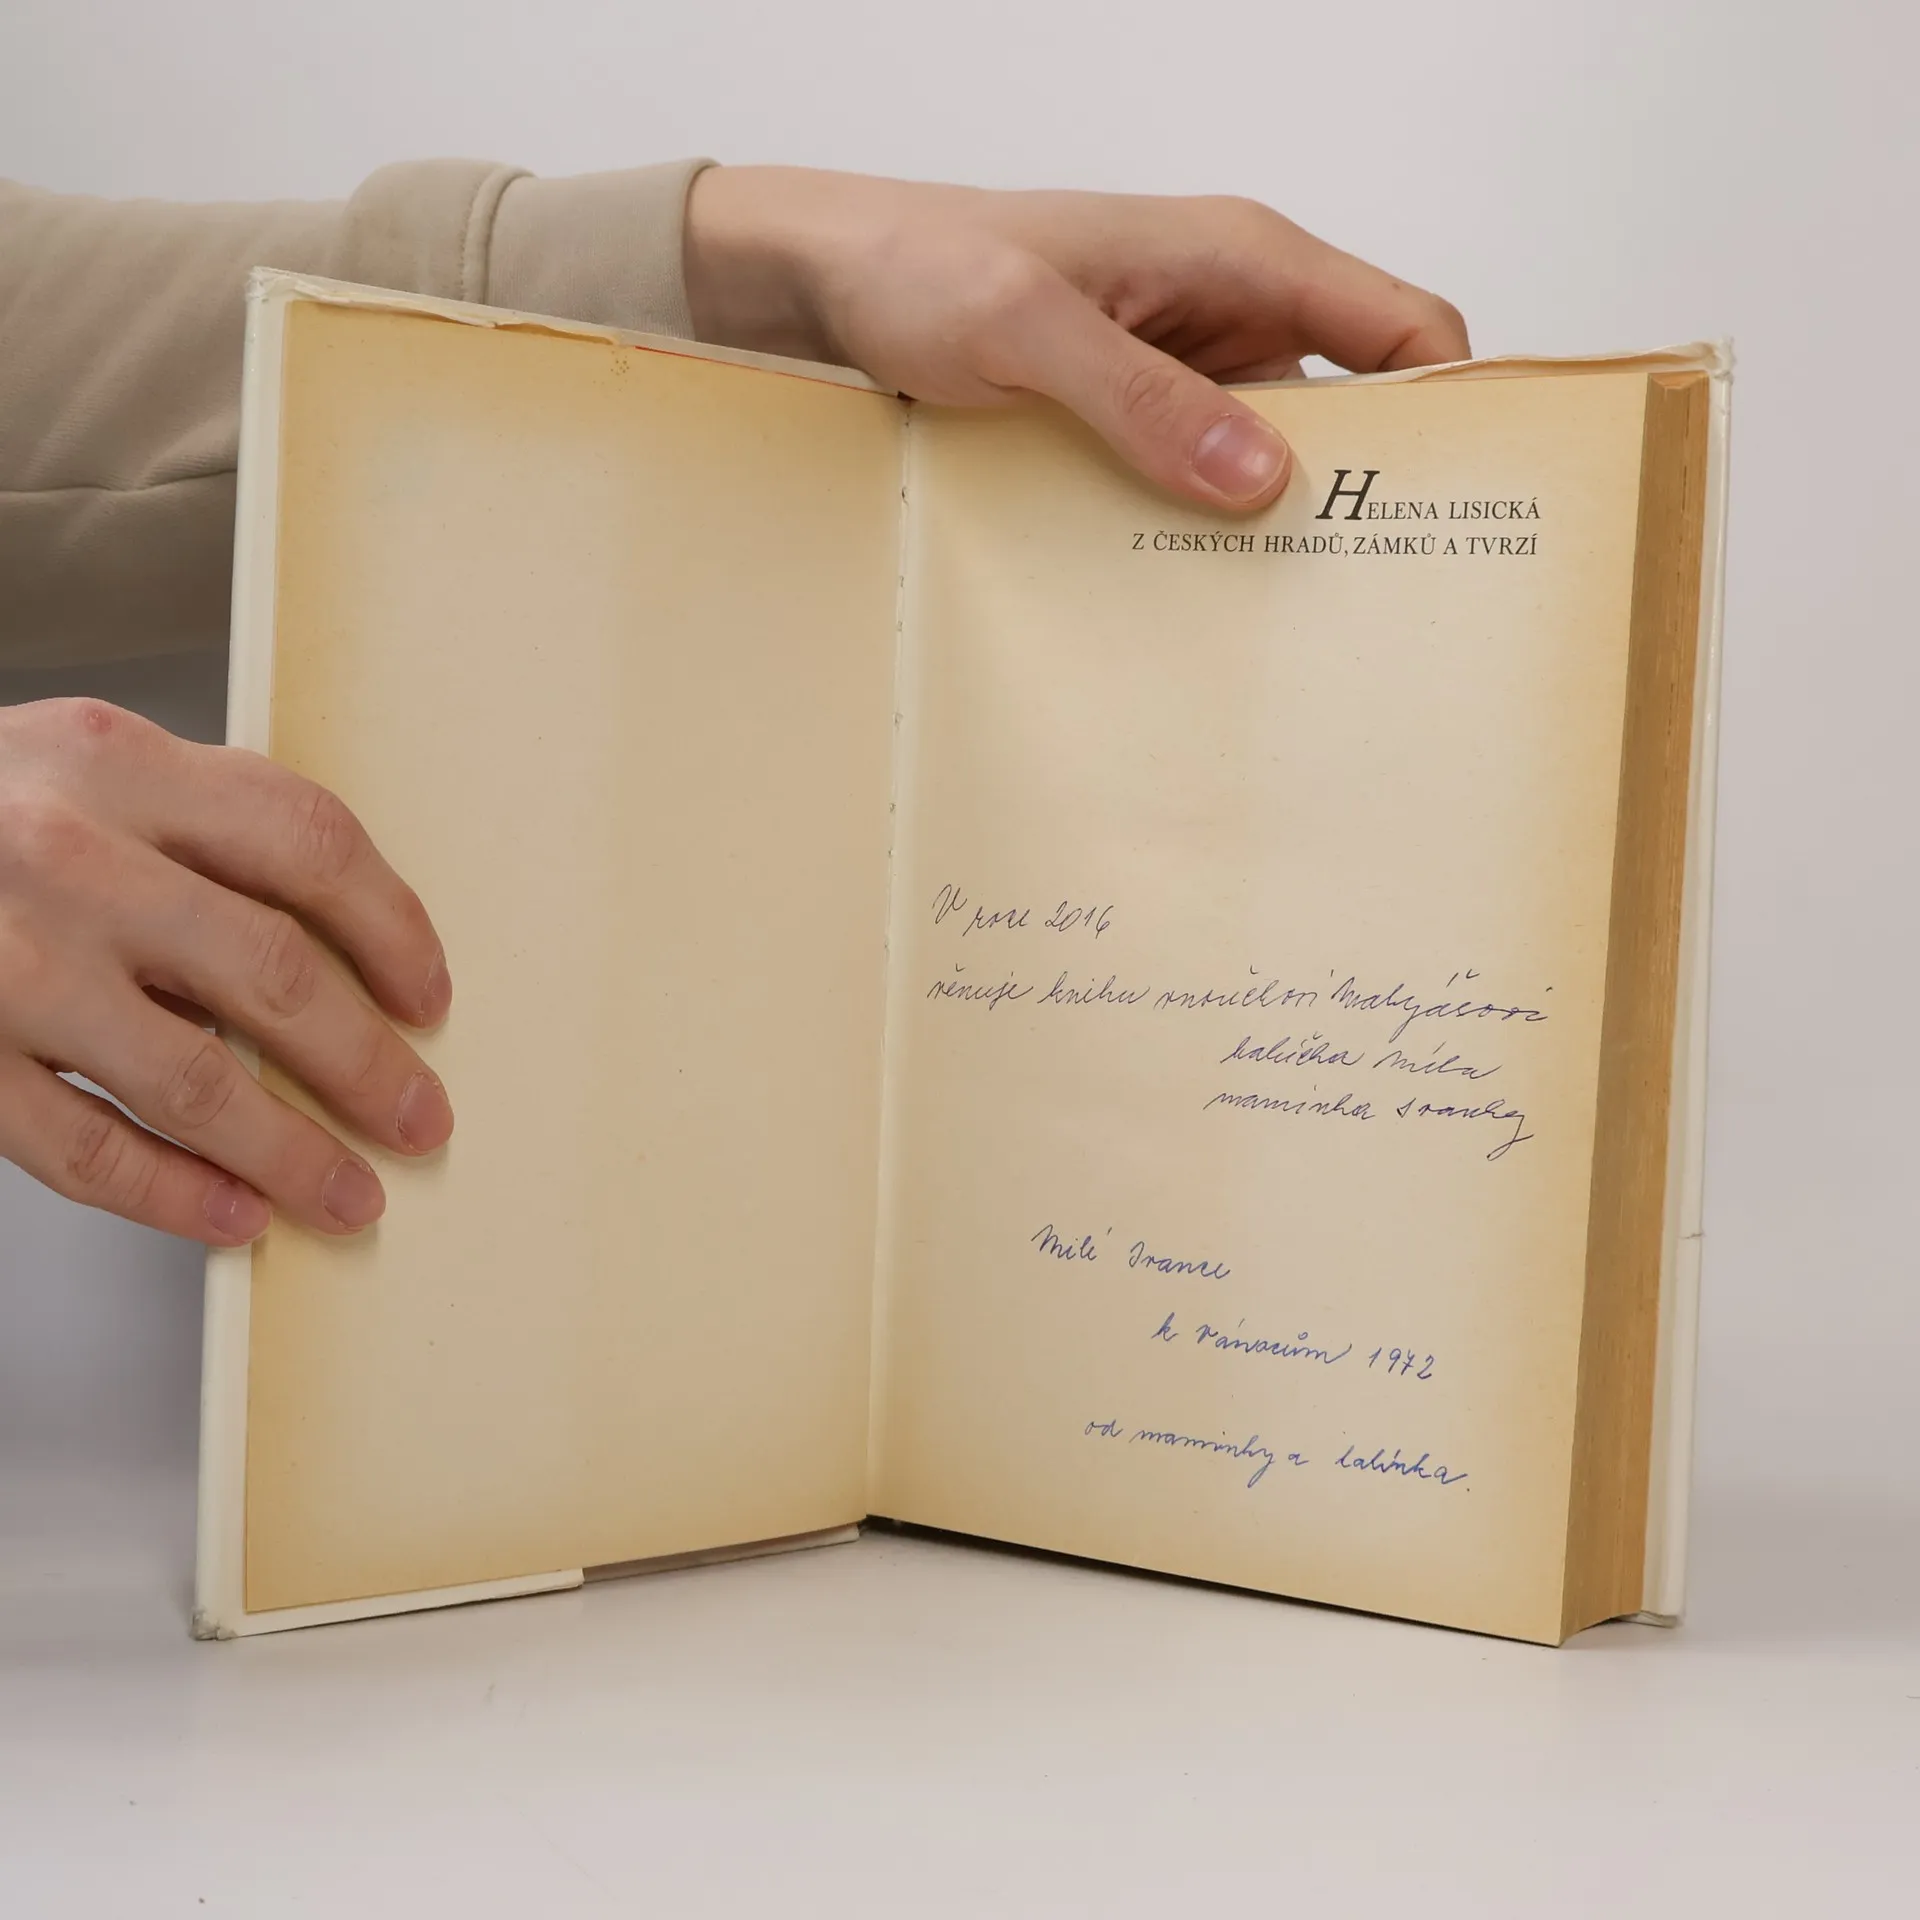 HELENA LISICKÁ
Z ČESKÝCH HRADŮ, ZÁMKŮ A TVRZÍ
V roce 2016
věnuje knihu vnoučkovi Matyášovi
babička Míla
maminka Ivanky
Milé Ivance
k vánocům 1972
od maminky a tatínka.